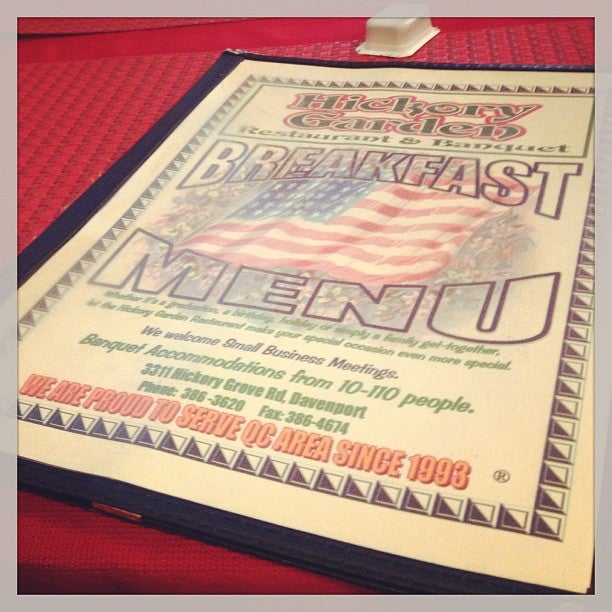 Hickory
Garden
Restaurant & Banquet
BREAKFAST
MENU
Whether it's a graduation, a birthday, holiday or simply a family get-together,
let the Hickory Garden Restaurant make your special occasion even more special.
We welcome Small Business Meetings.
Banquet Accommodations from 10-110 people.
3311 Hickory Grove Rd, Davenport
Phone: 386-3620 Fax: 386-4674
WE ARE PROUD TO SERVE QC AREA SINCE 1993
®